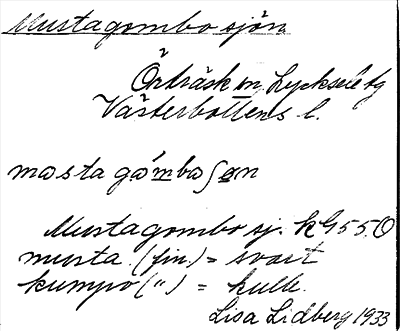 Mustagombosjön
Örträsk sn, Lycksele tg
Västerbottens l.
mastagåmbaʃøn
Mustagombosj. kG 55.O
musta (fin.) = svart
kumpo (") = kulle.
Lisa Lidberg 1933